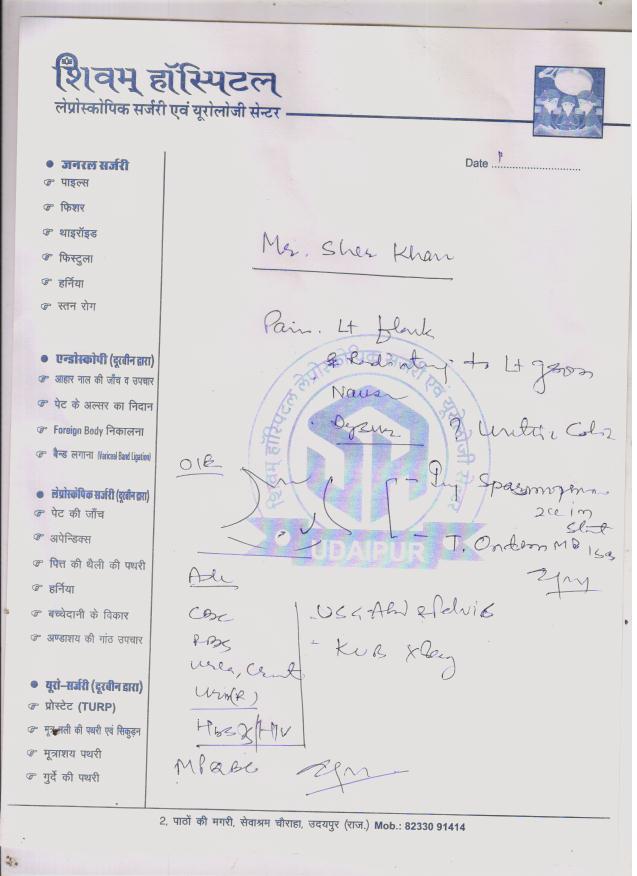 शिवम् हॉस्पिटल
लेप्रोस्कोपिक सर्जरी एवं यूरोलोजी सेन्टर
Date
● जनरल सर्जरी
☞ पाइल्स
☞ फिशर
☞ थाइरॉइड
☞ फिस्टुला
☞ हर्निया
☞ स्तन रोग
● एन्डोस्कोपी (दूरबीन द्वारा)
☞ आहार नाल की जाँच व उपचार
☞ पेट के अल्सर का निदान
☞ Foreign Body निकालना
☞ बैन्ड लगाना (Variceal Band Ligation)
● लेप्रोस्कोपिक सर्जरी (दूरबीन द्वारा)
☞ पेट की जाँच
☞ अपेन्डिक्स
☞ पित्त की थैली की पथरी
☞ हर्निया
☞ बच्चेदानी के विकार
☞ अण्डाशय की गांठ उपचार
● यूरो-सर्जरी (दूरबीन द्वारा)
☞ प्रोस्टेट (TURP)
☞ मूत्र नली की पथरी एवं सिकुड़न
☞ मूत्राशय पथरी
☞ गुर्दे की पथरी
Mr. Sher Khan
Pain. Lt flank
to Lt groin
O/E
stat
Adv
CBC
RBS
Urea, Creat
Urine(R)
HbsAg/HIV
MP QBC
USG Abd & Pelvis
- KUB Xray
शिवम् हॉस्पिटल लेप्रोस्कोपिक सर्जरी एवं यूरोलोजी सेन्टर
UDAIPUR
2, पाठों की मगरी, सेवाश्रम चौराहा, उदयपुर (राज.) Mob.: 82330 91414